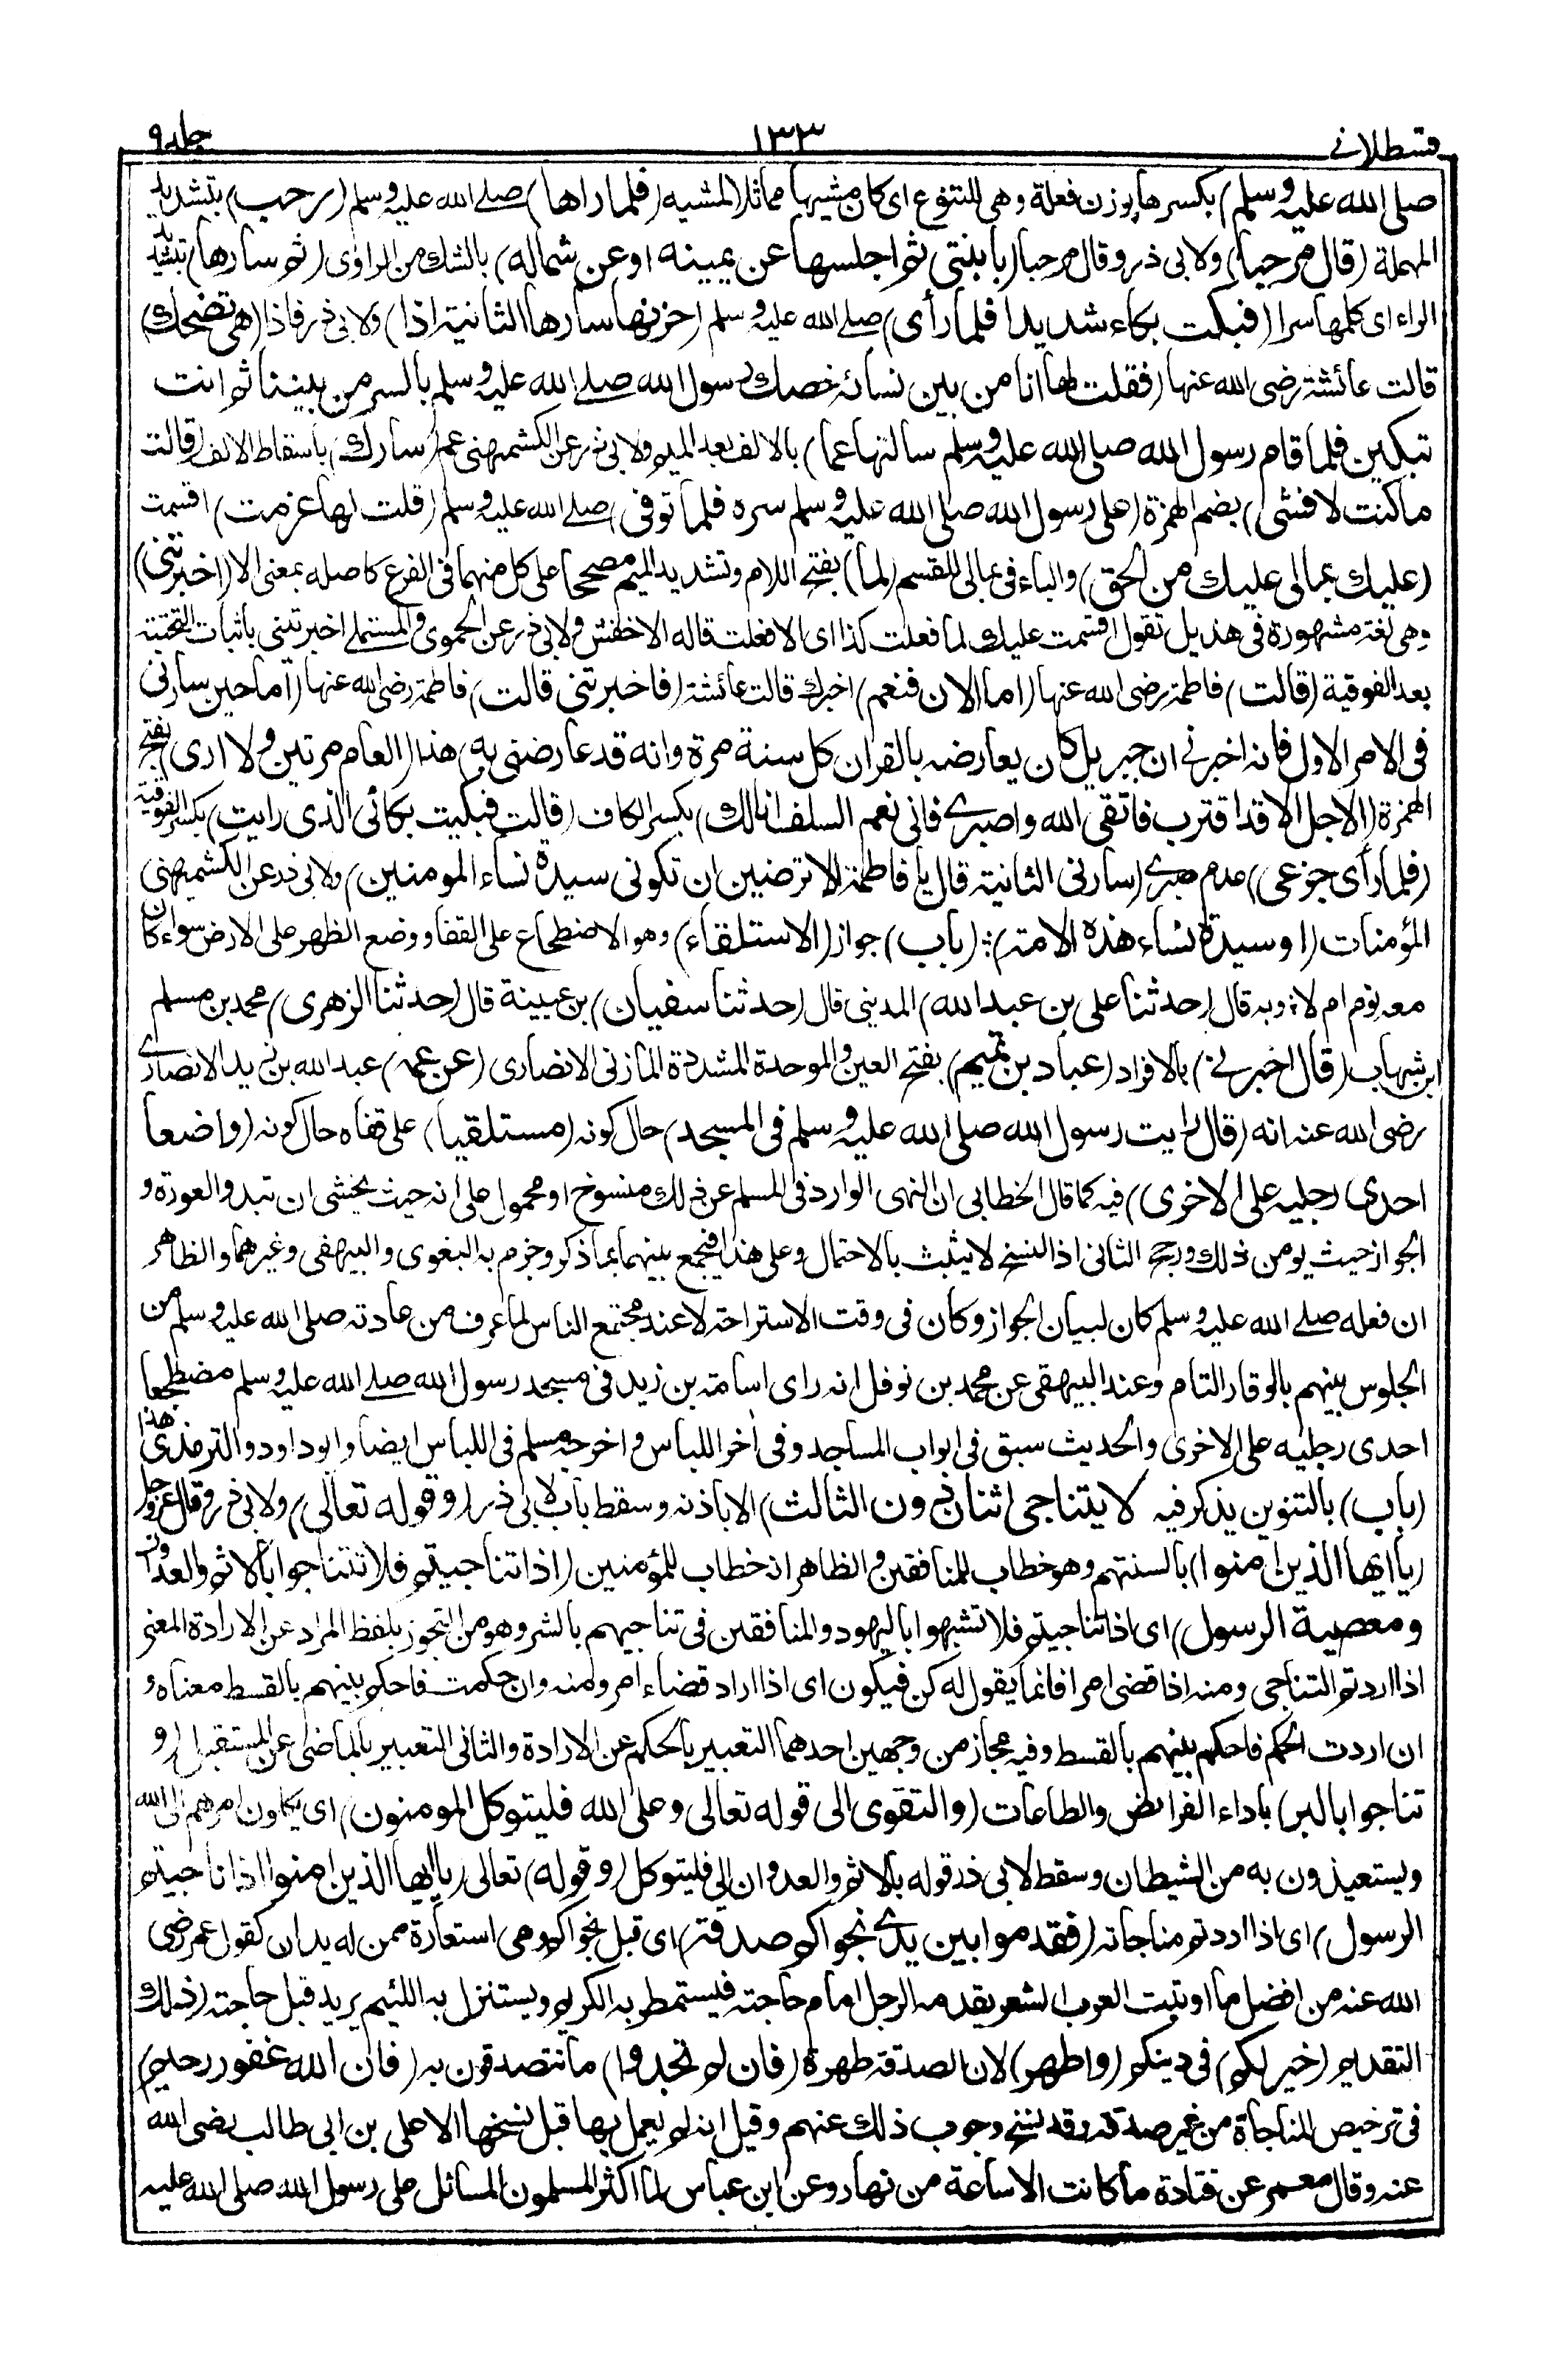 قسطلاني ١٣٣ جلد ٩
صلى الله عليه وسلم) بكسرها بوزن فعلة وهى للتنوع اى كان مشيها مماثلا لمشيه (فلما راها) صلى الله عليه وسلم (رحب) بتشديد
المهملة (قال مرحبا) ولابى ذر وقال مرحبا (بابنتى ثم اجلسها عن يمينه او عن شماله) بالشك من الراوى (ثم سارها) بتشديد
الراء اى كلمها سرا (فبكت بكاء شديدا فلما رأى) صلى الله عليه وسلم (حزنها سارها الثانية اذا) ولابى ذر فاذا (هى تضحك)
قالت عائشة رضى الله عنها (فقلت لها انا من بين نسائه خصك رسول الله صلى الله عليه وسلم بالسر من بيننا ثم انت
تبكين فلما قام رسول الله صلى الله عليه وسلم سالتها عما) بالالف بعد الميم ولابى ذر عن الكشميهنى عم (سارك) باسقاط الالف (قالت
ما كنت لافشى) بضم الهمزة (على رسول الله صلى الله عليه وسلم سره فلما توفى) صلى الله عليه وسلم (قلت لها عزمت) اقسمت
(عليك بمالى عليك من الحق) والباء فى بمالى للقسم (لما) بفتح اللام وتشديد الميم مصححا على كل منهما فى الفرع كاصله بمعنى الا (اخبرتنى)
وهى لغة مشهورة فى هذيل تقول اقسمت عليك لما فعلت كذا اى الا فعلت قاله الاخفش ولابى ذر عن الحموى والمستملى اخبرتينى باثبات التحتية
بعد الفوقية (قالت) فاطمة رضى الله عنها (اما الان فنعم) اخبرك قالت عائشة (فاخبرتنى قالت) فاطمة رضى الله عنها (اما حين سارنى
فى الامر الاول فانه اخبرنى ان جبريل كان يعارضه بالقران كل سنة مرة وانه قد عارضنى به) هذا (العام مرتين ولا ارى) بفتح
الهمزة (الاجل الا قد اقترب فاتقى الله واصبرى فانى نعم السلف انا لك) بكسر الكاف (قالت فبكيت بكائى الذى رايت) بكسر الفوقية
(فلما رأى جزعى) عدم صبرى (سارنى الثانية قال يا فاطمة الا ترضين ان تكونى سيدة نساء المومنين) ولابى ذر عن الكشميهنى
المؤمنات (او سيدة نساء هذه الامة) (باب) جواز (الاستلقاء) وهو الاضطجاع على القفا ووضع الظهر على الارض سواء كان
معه نوم ام لا وبه قال (حدثنا على بن عبد الله) المدينى قال (حدثنا سفيان) بن عيينة قال (حدثنا الزهرى) محمد بن مسلم
ابن شهاب (قال اخبرنى) بالافراد (عباد بن تميم) بفتح العين والموحدة المشددة المازنى الانصارى (عن عمه) عبد الله بن زيد الانصارى
رضى الله عنه انه (قال رايت رسول الله صلى الله عليه وسلم فى المسجد) حال كونه (مستلقيا) على قفاه حال كونه (واضعا
احدى رجليه على الاخرى) فيه كما قال الخطابى ان النهى الوارد فى المسلم عن ذلك منسوخ او محمول على انه حيث يخشى ان تبدو العورة و
الجواز حيث يومن ذلك ورجح الثانى اذ النسخ لا يثبت بالاحتمال وعلى هذا فيجمع بينهما بما ذكر وجزم به البغوى والبيهقى وغيرهما والظاهر
ان فعله صلى الله عليه وسلم كان لبيان الجواز وكان فى وقت الاستراحة لا عند مجتمع الناس لما عرف من عادته صلى الله عليه وسلم من
الجلوس بينهم بالوقار التام وعند البيهقى عن محمد بن نوفل انه راى اسامة بن زيد فى مسجد رسول الله صلى الله عليه وسلم مضطجعا
احدى رجليه على الاخرى والحديث سبق فى ابواب المساجد وفى آخر اللباس واخرجه مسلم فى اللباس ايضا وابو داود والترمذى هذا
(باب) بالتنوين يذكر فيه لا يتناجى اثنان دون الثالث) الا باذنه وسقط باب لابى ذر (وقوله تعالى) ولابى ذر وقال عز وجل
(يا ايها الذين امنوا) بالسنتهم وهو خطاب للمنافقين والظاهر انه خطاب للمؤمنين (اذا تناجيتم فلا تتناجوا بالاثم والعدوان
ومعصية الرسول) اى اذا تناجيتم فلا تشبهوا باليهود والمنافقين فى تناجيهم بالشر وهو من التجوز بلفظ المراد عن الارادة المعنى
اذا اردتم التناجى ومنه اذا قضى امرا فانما يقول له كن فيكون اى اذا اراد قضاء امر ومنه وان حكمت فاحكم بينهم بالقسط معناه و
ان اردت الحكم فاحكم بينهم بالقسط وفيه مجاز من وجهين احدهما التعبير بالحكم عن الارادة والثانى التعبير بالماضى عن المستقبل (و
تناجوا بالبر) باداء الفرائض والطاعات (والتقوى الى قوله تعالى وعلى الله فليتوكل المومنون) اى يكلون امرهم الى الله
ويستعيذون به من الشيطان وسقط لابى ذر قوله بالاثم والعدوان الى فليتوكل (وقوله) تعالى (يا ايها الذين امنوا اذا ناجيتم
الرسول) اى اذا اردتم مناجاته (فقدموا بين يدى نجواكم صدقة) اى قبل نجواكم وهى استعارة ممن له يدان كقول عمر رضى
الله عنه من افضل ما اوتيت العرب الشعر يقدمه الرجل امام حاجته فيستمطر به الكريم ويستنزل به اللئيم يريد قبل حاجته (ذلك
التقديم (خير لكم) فى دينكم (واطهر) لان الصدقة طهرة (فان لم تجدوا) ما تتصدقون به (فان الله غفور رحيم)
فى ترخيص المناجاة من غير صدقة وقد نسخ وجوب ذلك عنهم وقيل انه لم يعمل بها قبل نسخها الا على بن ابى طالب رضى الله
عنه وقال معمر عن قتادة ما كانت الا ساعة من نهار وعن ابن عباس لما اكثر المسلمون المسائل على رسول الله صلى الله عليه